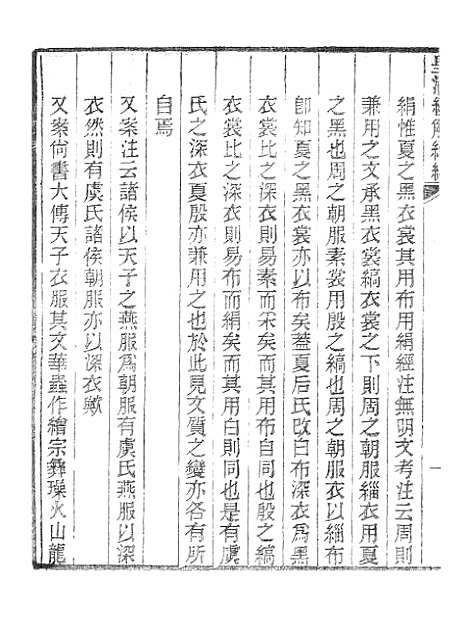 皇清經解續編
絹惟夏之黑衣裳其用布用絹經注無明文考注云周則
兼用之文承黑衣裳縞衣裳之下則周之朝服緇衣用夏
之黑也周之朝服素裳用殷之縞也周之朝服衣以緇布
卽知夏之黑衣裳亦以布矣蓋夏后氏改白布深衣爲黑
衣裳比之深衣則易素而采矣而其用布自同也殷之縞
衣裳比之深衣則易布而絹矣而其用白則同也是有虞
氏之深衣夏殷亦兼用之也於此見文質之變亦各有所
自焉
又案注云諸侯以天子之燕服爲朝服有虞氏燕服以深
衣然則有虞氏諸侯朝服亦以深衣歟
又案尙書大傳天子衣服其文華蟲作繪宗彝璪火山龍